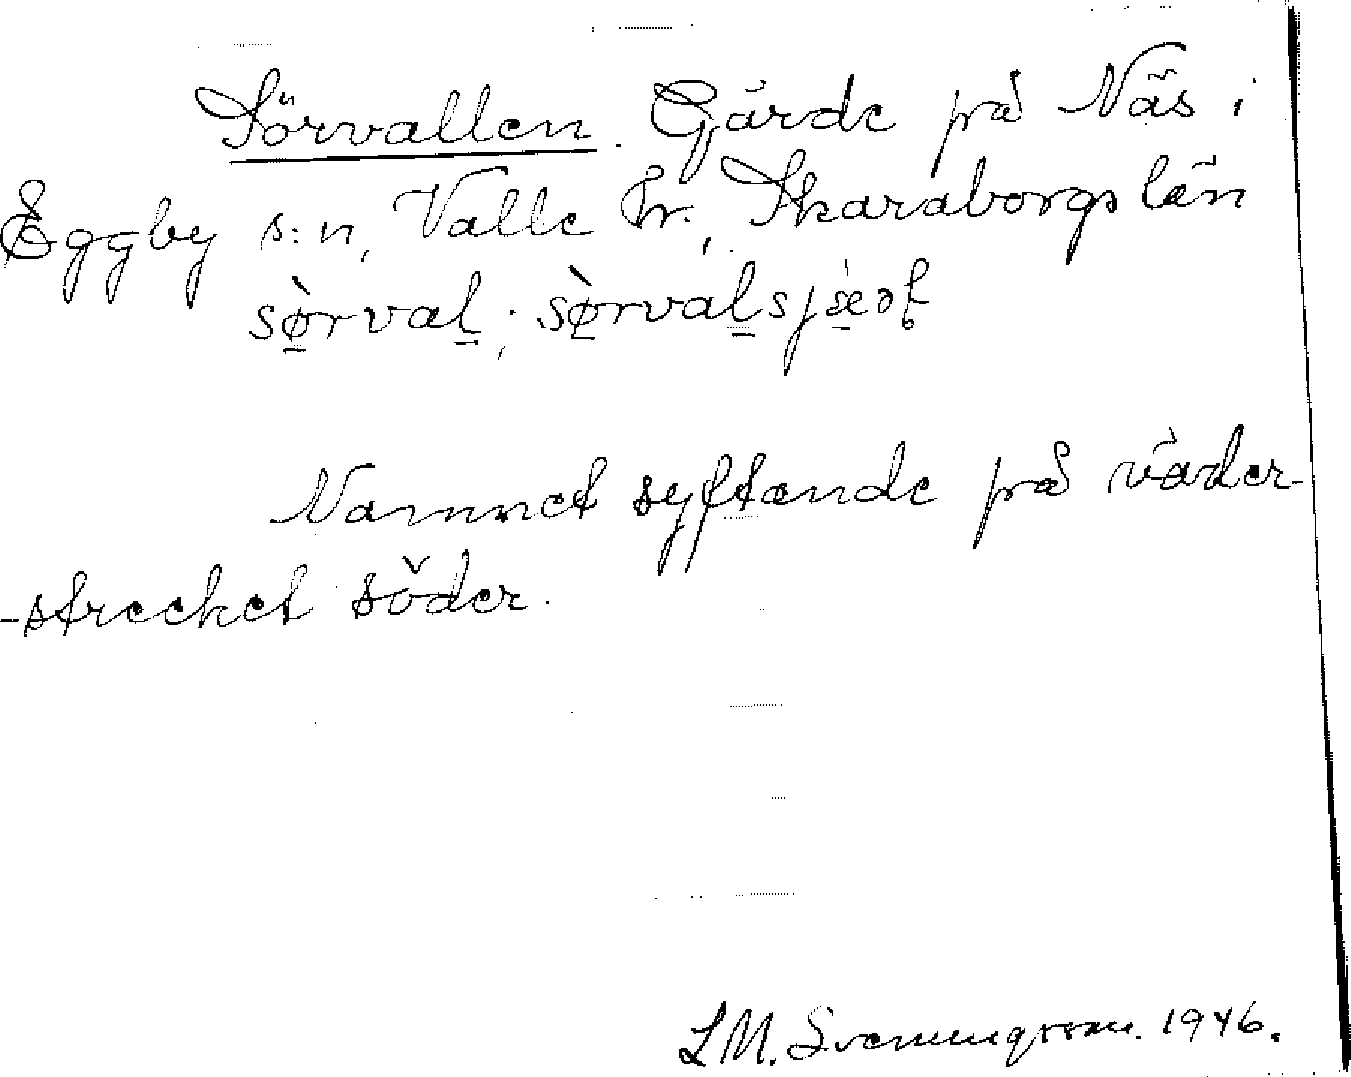 Sörvallen. Gärde på Näs i
Eggby s:n, Valle hr., Skaraborgs län
sø̀rval; sø̀rvalsjæ̀ɂ
Namnet syftande på väder-
-strecket söder.
L M. Svenningsson. 1946.